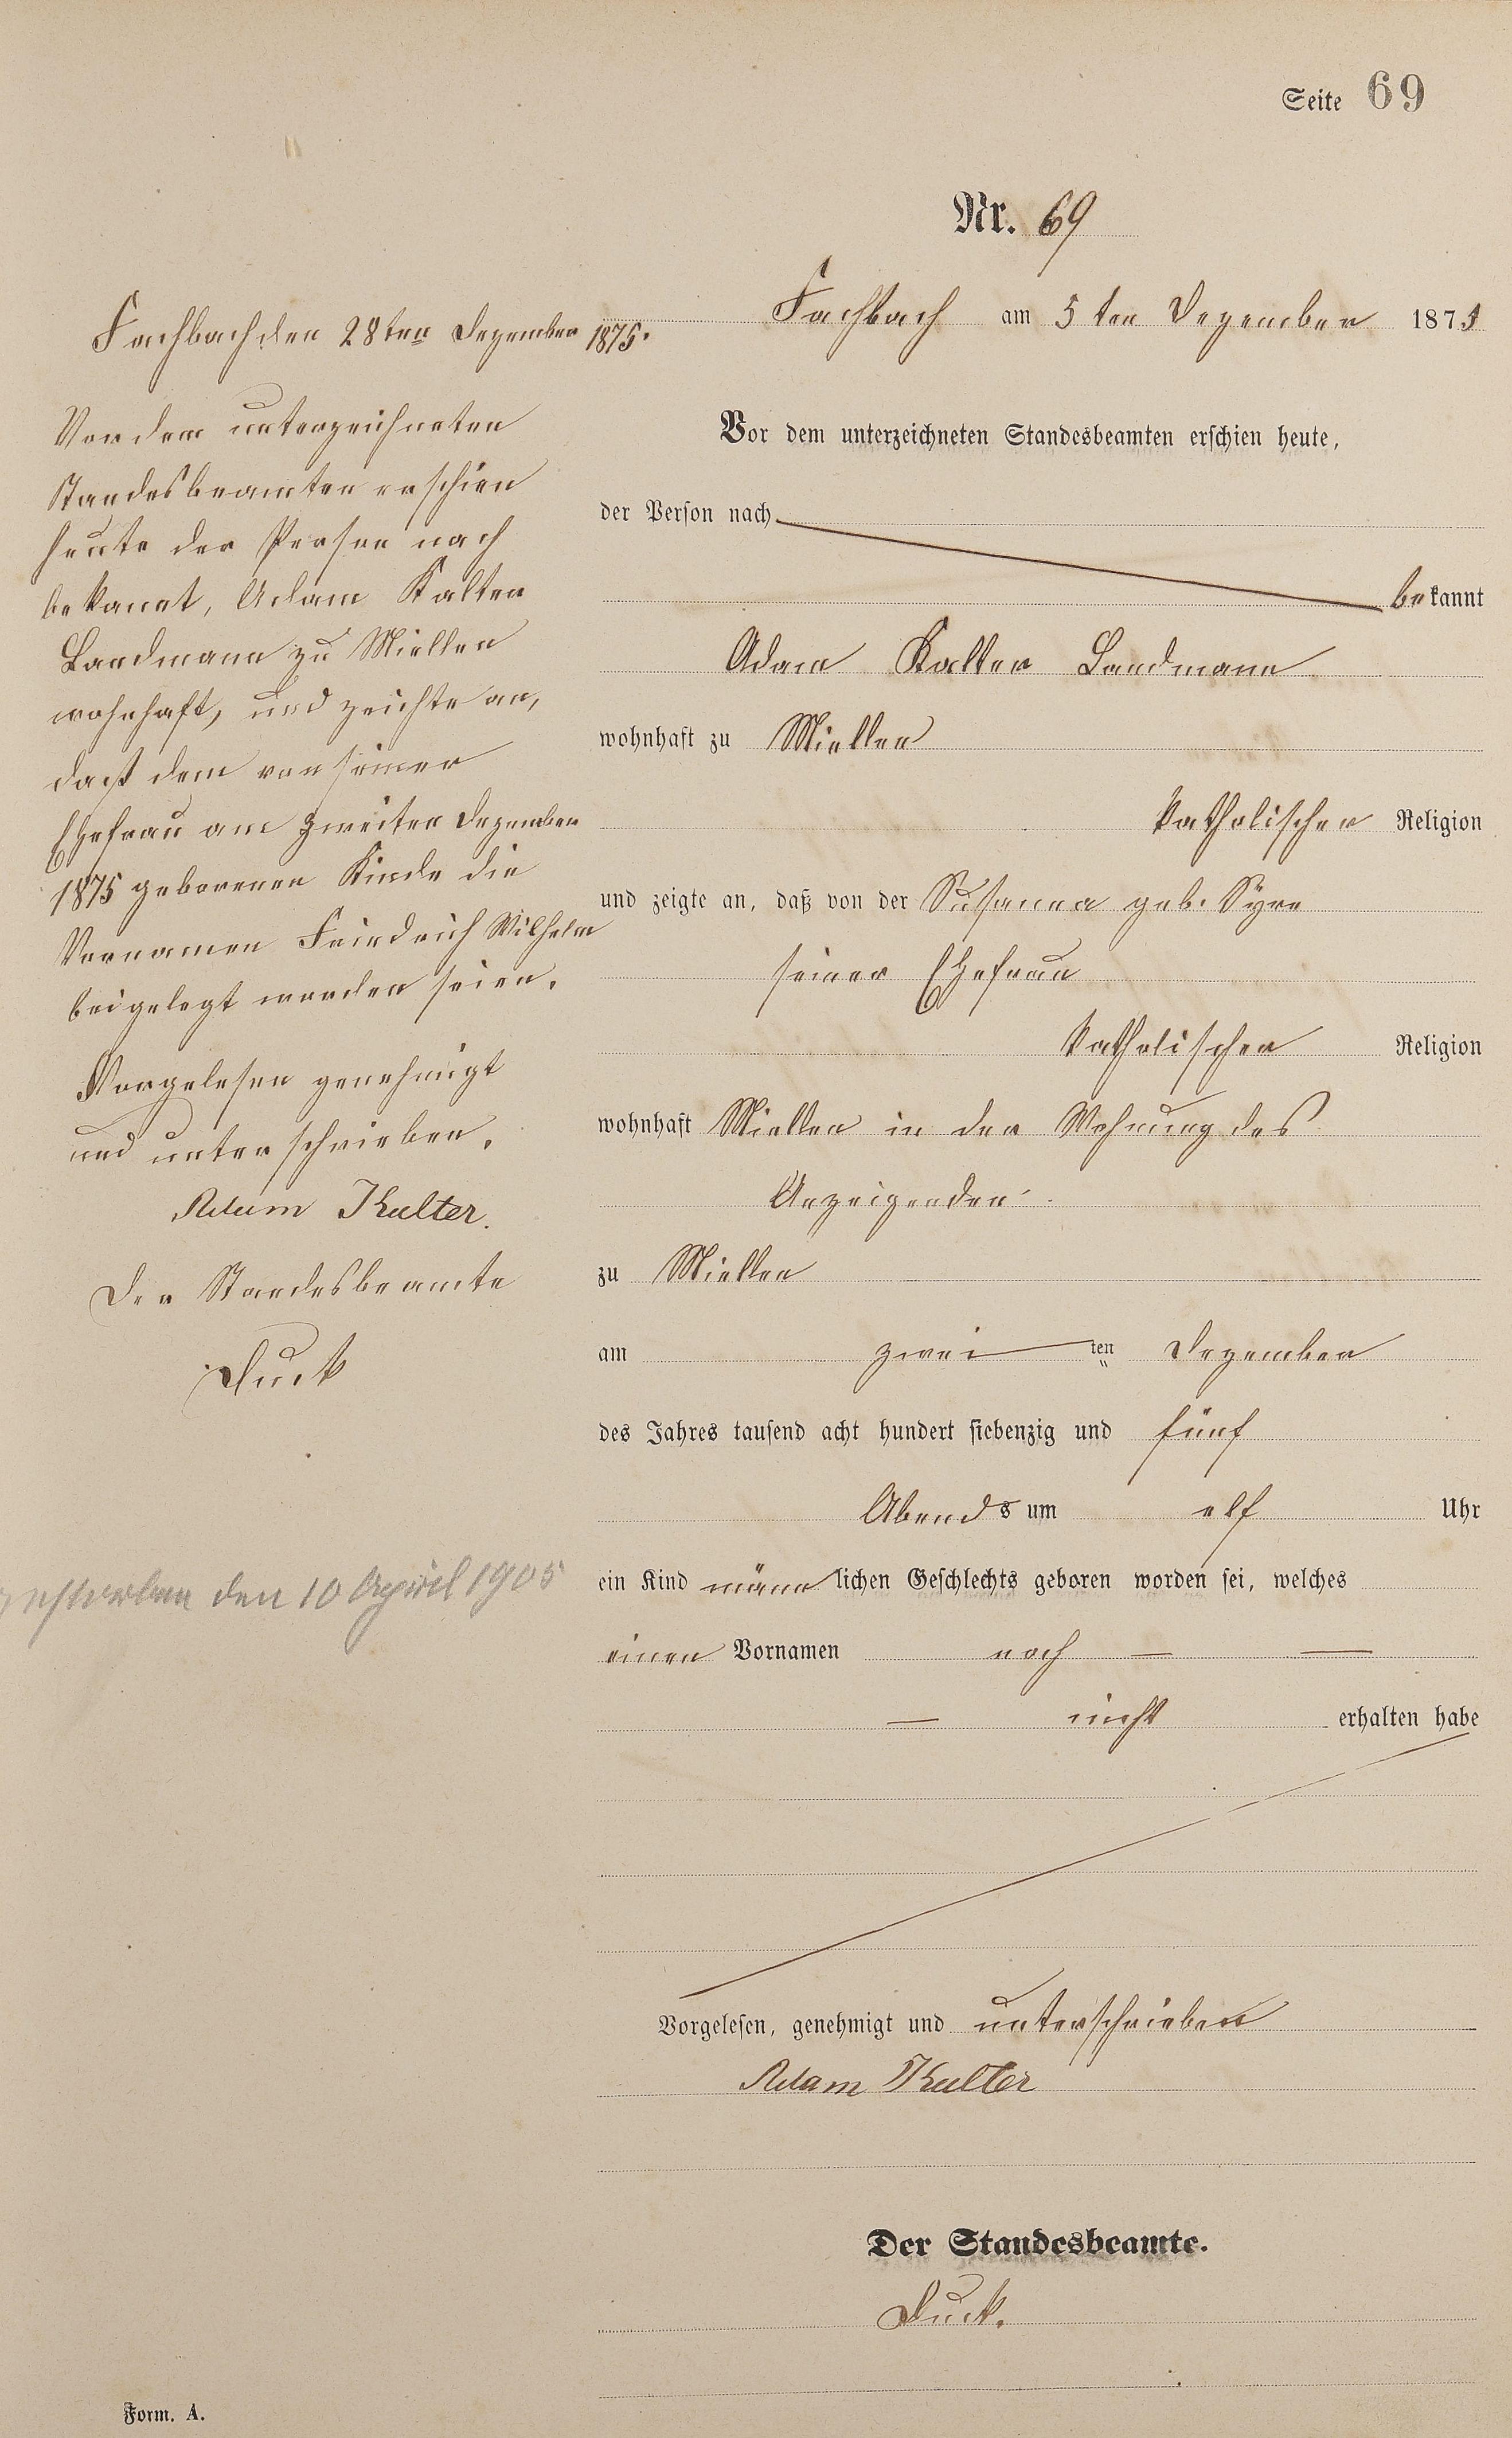 Seite 69
Nr. 69
Fachbach am 5 ten Dezember 1875
Vor dem unterzeichneten Standesbeamten erschien heute,
der Person nach
bekannt
Adam Kalter Landmann
wohnhaft zu Miellen
katholischer Religion
und zeigte an, daß von der Susanna geb. Syre
seiner Ehefrau
katholischer Religion
wohnhaft Miellen in der Wohnung des
Anzeigenden
zu Miellen
am zwei ten Dezember
des Jahres tausend acht hundert siebenzig und fünf
Abends um elf Uhr
ein Kind männlichen Geschlechts geboren worden sei, welches
einen Vornamen noch — —
— nicht erhalten habe
Vorgelesen, genehmigt und unterschrieben
Adam Kalter
Der Standesbeamte.
Duck.
Fachbach den 28ten Dezember 1875.
Vor dem unterzeichneten
Standesbeamten erschien
heute der Person nach
bekannt, Adam Kalter
Landmann zu Miellen
wohnhaft, und zeichte an,
daß dem von seiner
Ehefrau am zweiten Dezember
1875 geborenen Kinde die
Vornamen Friedrich Wilhelm
beigelegt worden seien.
Vorgelesen genehmigt
und unterschrieben.
Adam Kalter.
Der Standesbeamte
Duck
gestorben den 10 April 1905
Form. A.